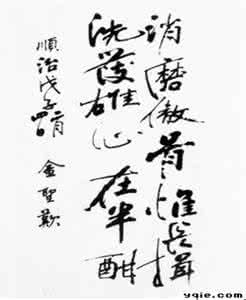 消磨傲骨惟長揖
洗發雄心在半酣
順治戊子四月
金聖歎
yqie.com